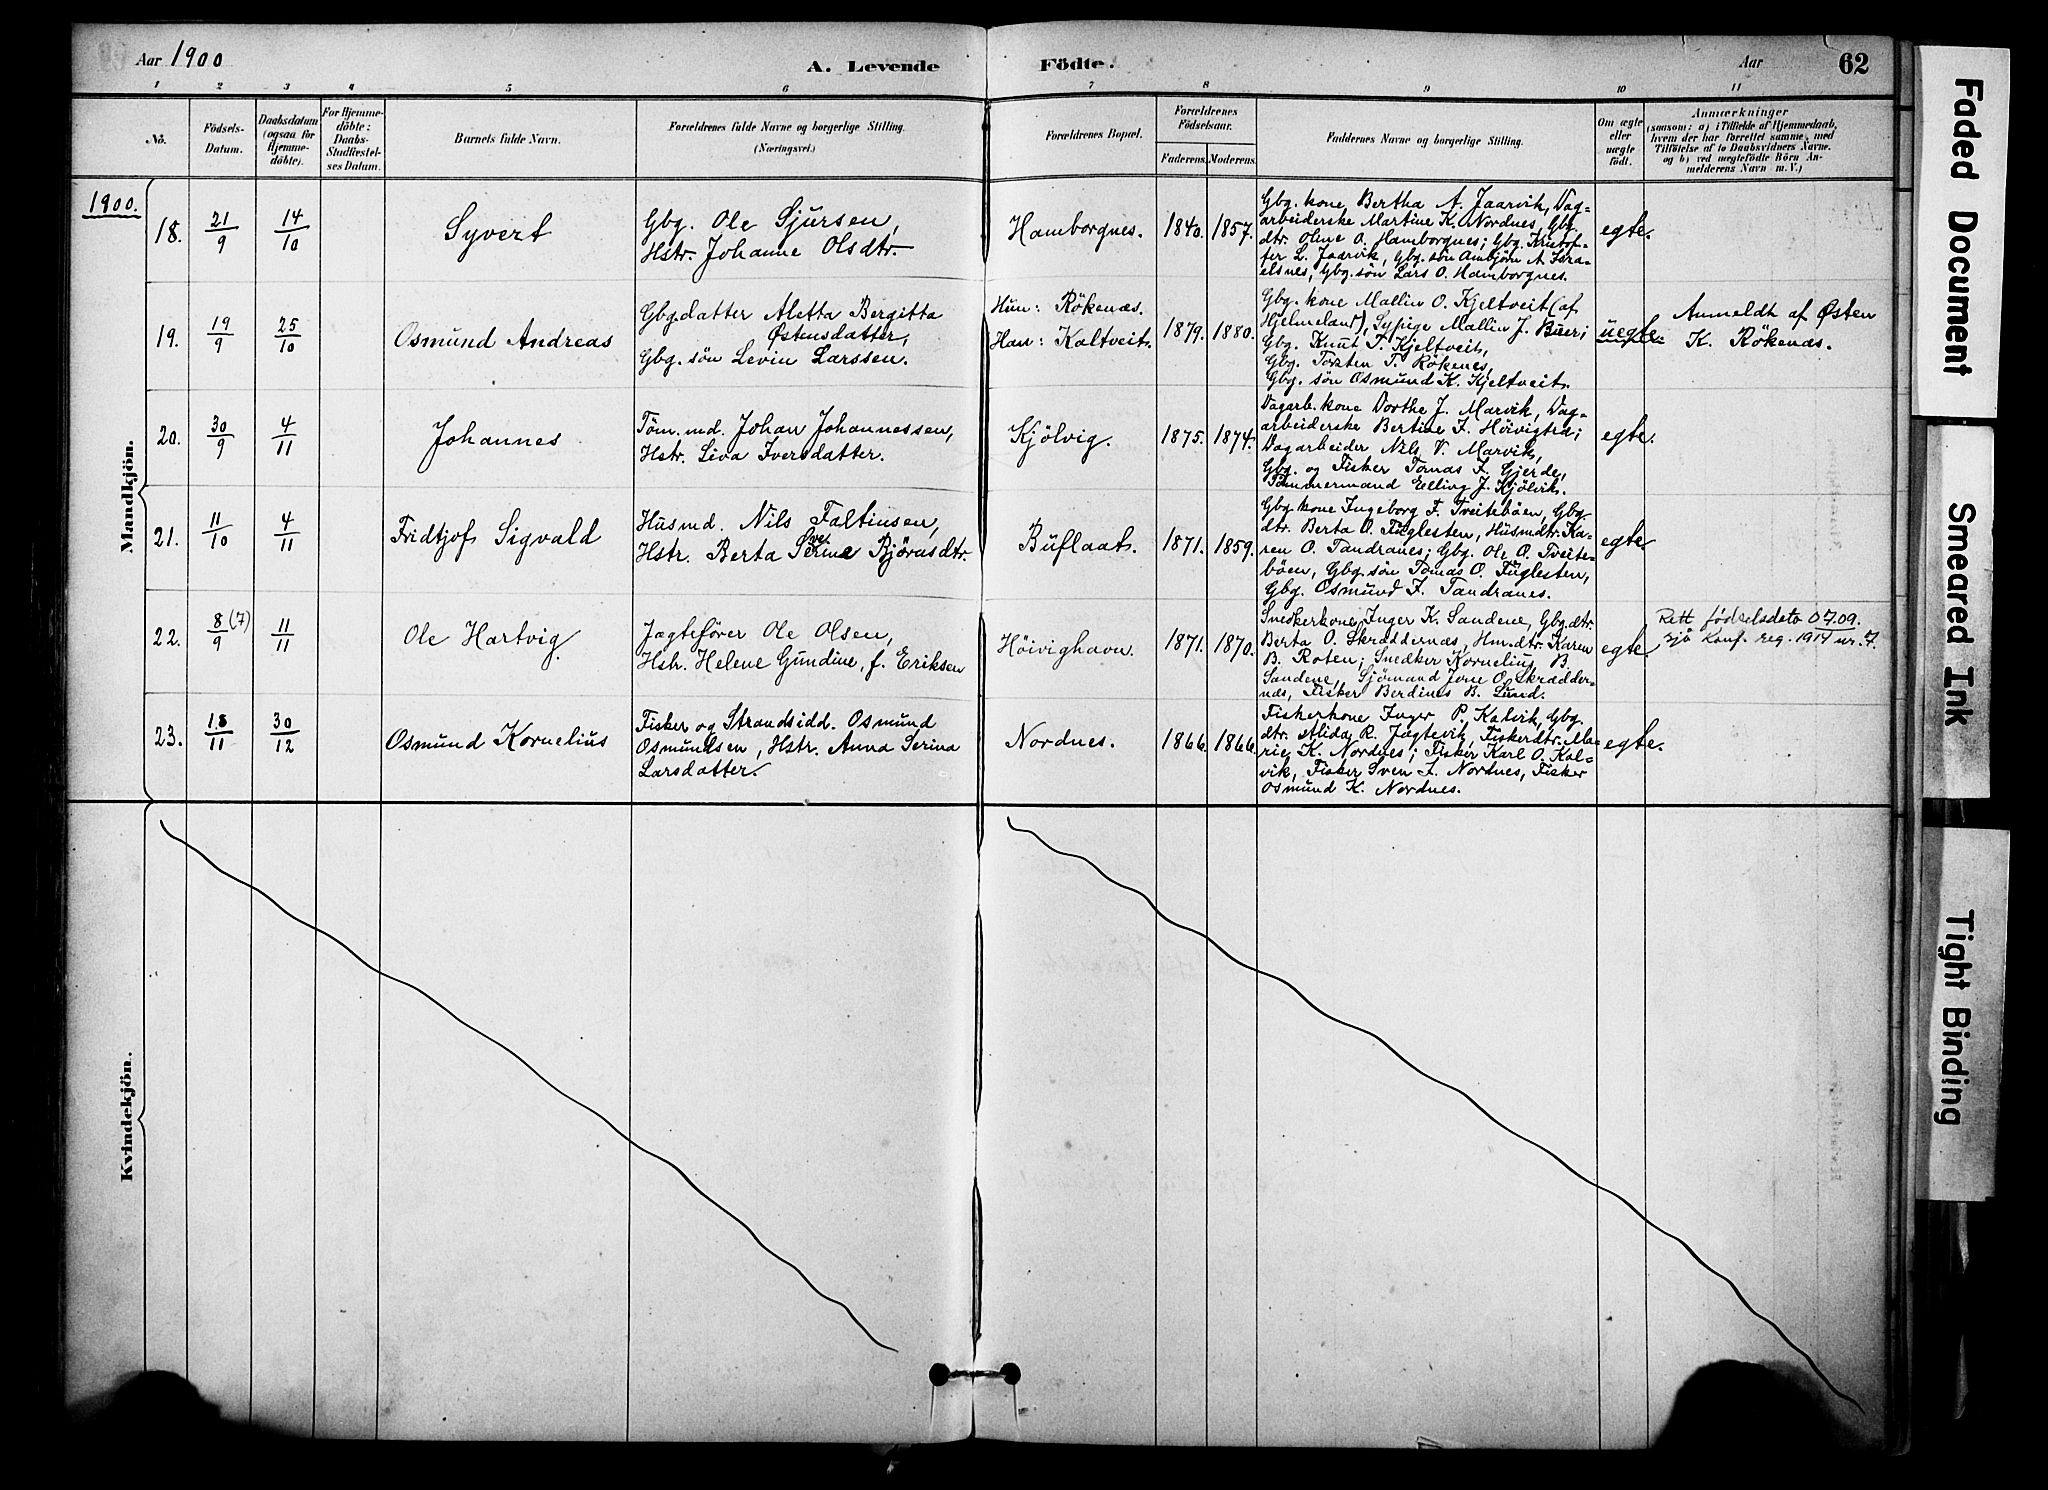 Aar 1900
A. Levende Födte.
Aar 62
1 2 3 4 5 6 7 8 9 10 11
No.
Födsels-
Datum.
Daabsdatum
(ogsaa for
Hjemme-
döbte).
For Hjemme-
döbte:
Daabs-
Stadfæstel-
ses Datum.
Barnets fulde Navn.
Forældrenes fulde Navne og borgerlige Stilling.
(Næringsvei.)
Forældrenes Bopæl.
Forældrenes
Födselsaar.
Faderens. Moderens.
Faddernes Navne og borgerlige Stilling.
Om ægte
eller
uægte
født.
Anmærkninger
(saasom: a) i Tilfælde af Hjemmedaab,
hvem der har forrettet samme, med
Tilföielse af to Daabsvidners Navne,
og b) ved uægtefødte Börn An-
melderens Navn m. V.)
1900.
Mandkjön.
18.
21/9
14/10
Syvert
Gbg. Ole Sjursen,
Hstr. Johanne Olsdtr.
Hamborgnes.
1840. 1857.
Gbg. kone Bertha A. Jaarvik, Dag-
arbeiderske Martine K. Nordnes, Gbg.
dtr. Oline O. Hamborgnes; Gbg. Kristof-
fer L. Jaarvik, Gbg. sön Ambjörn A.
elsnes, Gbg. sön Lars O. Hamborgnes.
egte.
19.
19/9
25/10
Osmund Andreas
Gbgdatter Aletta Bergitta
Østensdatter,
Gbg. sön Levin Larssen.
Hun: Rökenæs.
Han: Kaltveit.
1879. 1880.
Gbg. kone Mallin O. Kjeltveit (af
Hjelmeland), Sypige Mallin J. Buer;
Gbg. Knut T. Kjeltveit,
Gbg. Torsten T. Rökenes,
Gbg. sön Osmund K. Kjeltveit.
uegte.
Anmeldt af Østen
K. Rökenæs.
20.
30/9
4/11
Johannes
Töm.md. Johan Johannessen,
Hstr. Siva Iversdatter.
Kjölvig.
1875. 1874.
Dagarb. kone Dorthe J. Marvik, Dag-
arbeiderske Bertine F. Höivigtra;
Dagarbeider Nils V. Marvik,
Gbg. og Fisker Tomas F. Gjerde,
Tömmermand Elling J. Kjölvik.
egte.
21.
11/10
4/11
Fridtjof Sigvald
Husmd. Nils Faltinsen,
Hstr. Berta Björnsdtr.
Buflaat.
1871. 1859.
Gbg kone Ingeborg F. Tveiteböen, Gbg
dtr. Berta O. Fuglesten, Husmdtr. Ka-
ren O. Tandranes; Gbg. Ole O. Tveite-
böen, Gbg. sön Tomas O. Fuglesten,
Gbg. Osmund F. Tandranes.
egte.
22.
8/9 (7)
11/11
Ole Hartvig
Jagtefører Ole Olsen,
Hstr. Helene Gundine, f. Eriksen
Höivighavn.
1871. 1870.
Snedkerkone Inger K. Sandene, Gbg. dtr.
Berta O. Skræddernæs, Hm.dtr. Karen
B. Roten; Snedker Kornelius B.
Sandene, Sjömand Jone O. Skrædder-
næs, Fisker Berdines B. Lund.
egte.
Rett födselsdato 07.09.
sjå Konf. reg. 1914 nr. 7.
23.
18/11
30/12
Osmund Kornelius
Fisker og Strandsidd. Osmund
Osmundsen, Hstr. Anna Serina
Larsdatter.
Nordnes.
1866. 1866.
Fiskerkone Inger P. Kalvik, Gbg.
dtr. Alida R. Jagtevik, Fiskerdtr. Ma-
rie K. Nordnes; Fisker Karl O. Kal-
vik, Fisker Sven F. Nordnes, Fisker
Osmund K. Nordnes.
egte.
Kvindekjön.
Faded Document
Smeared Ink
Tight Binding